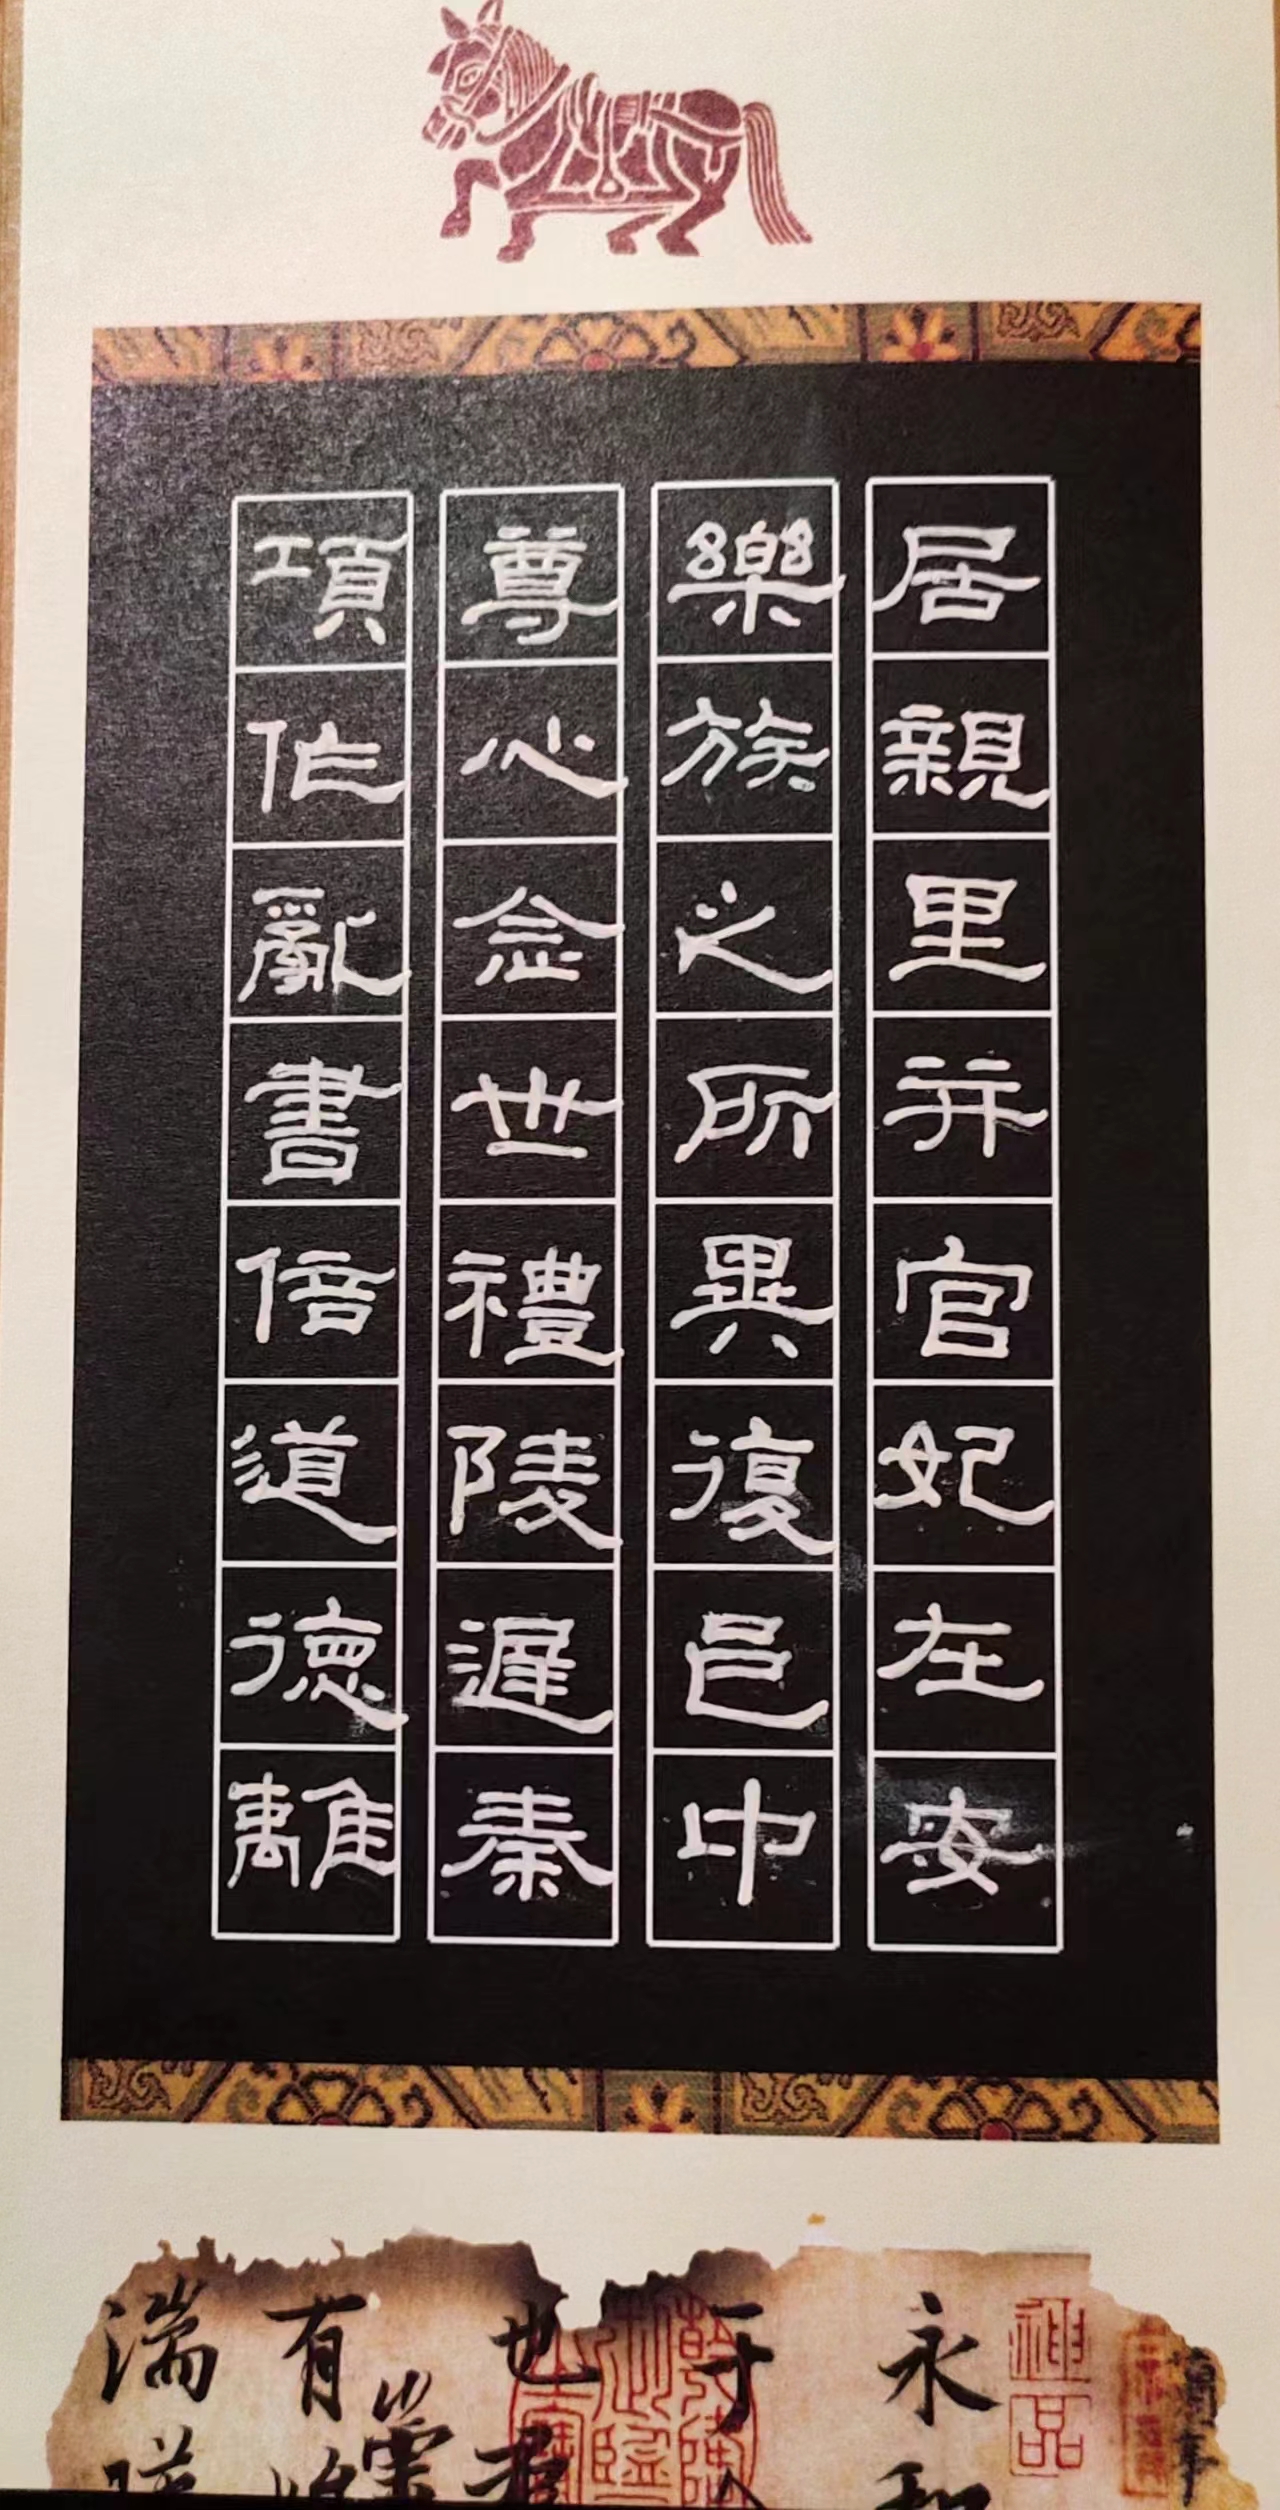 居親里并官妃在安
樂族之所異復邑中
尊心念世禮陵遲秦
項作亂書倍道德離
神品
永
于
也
有
湍